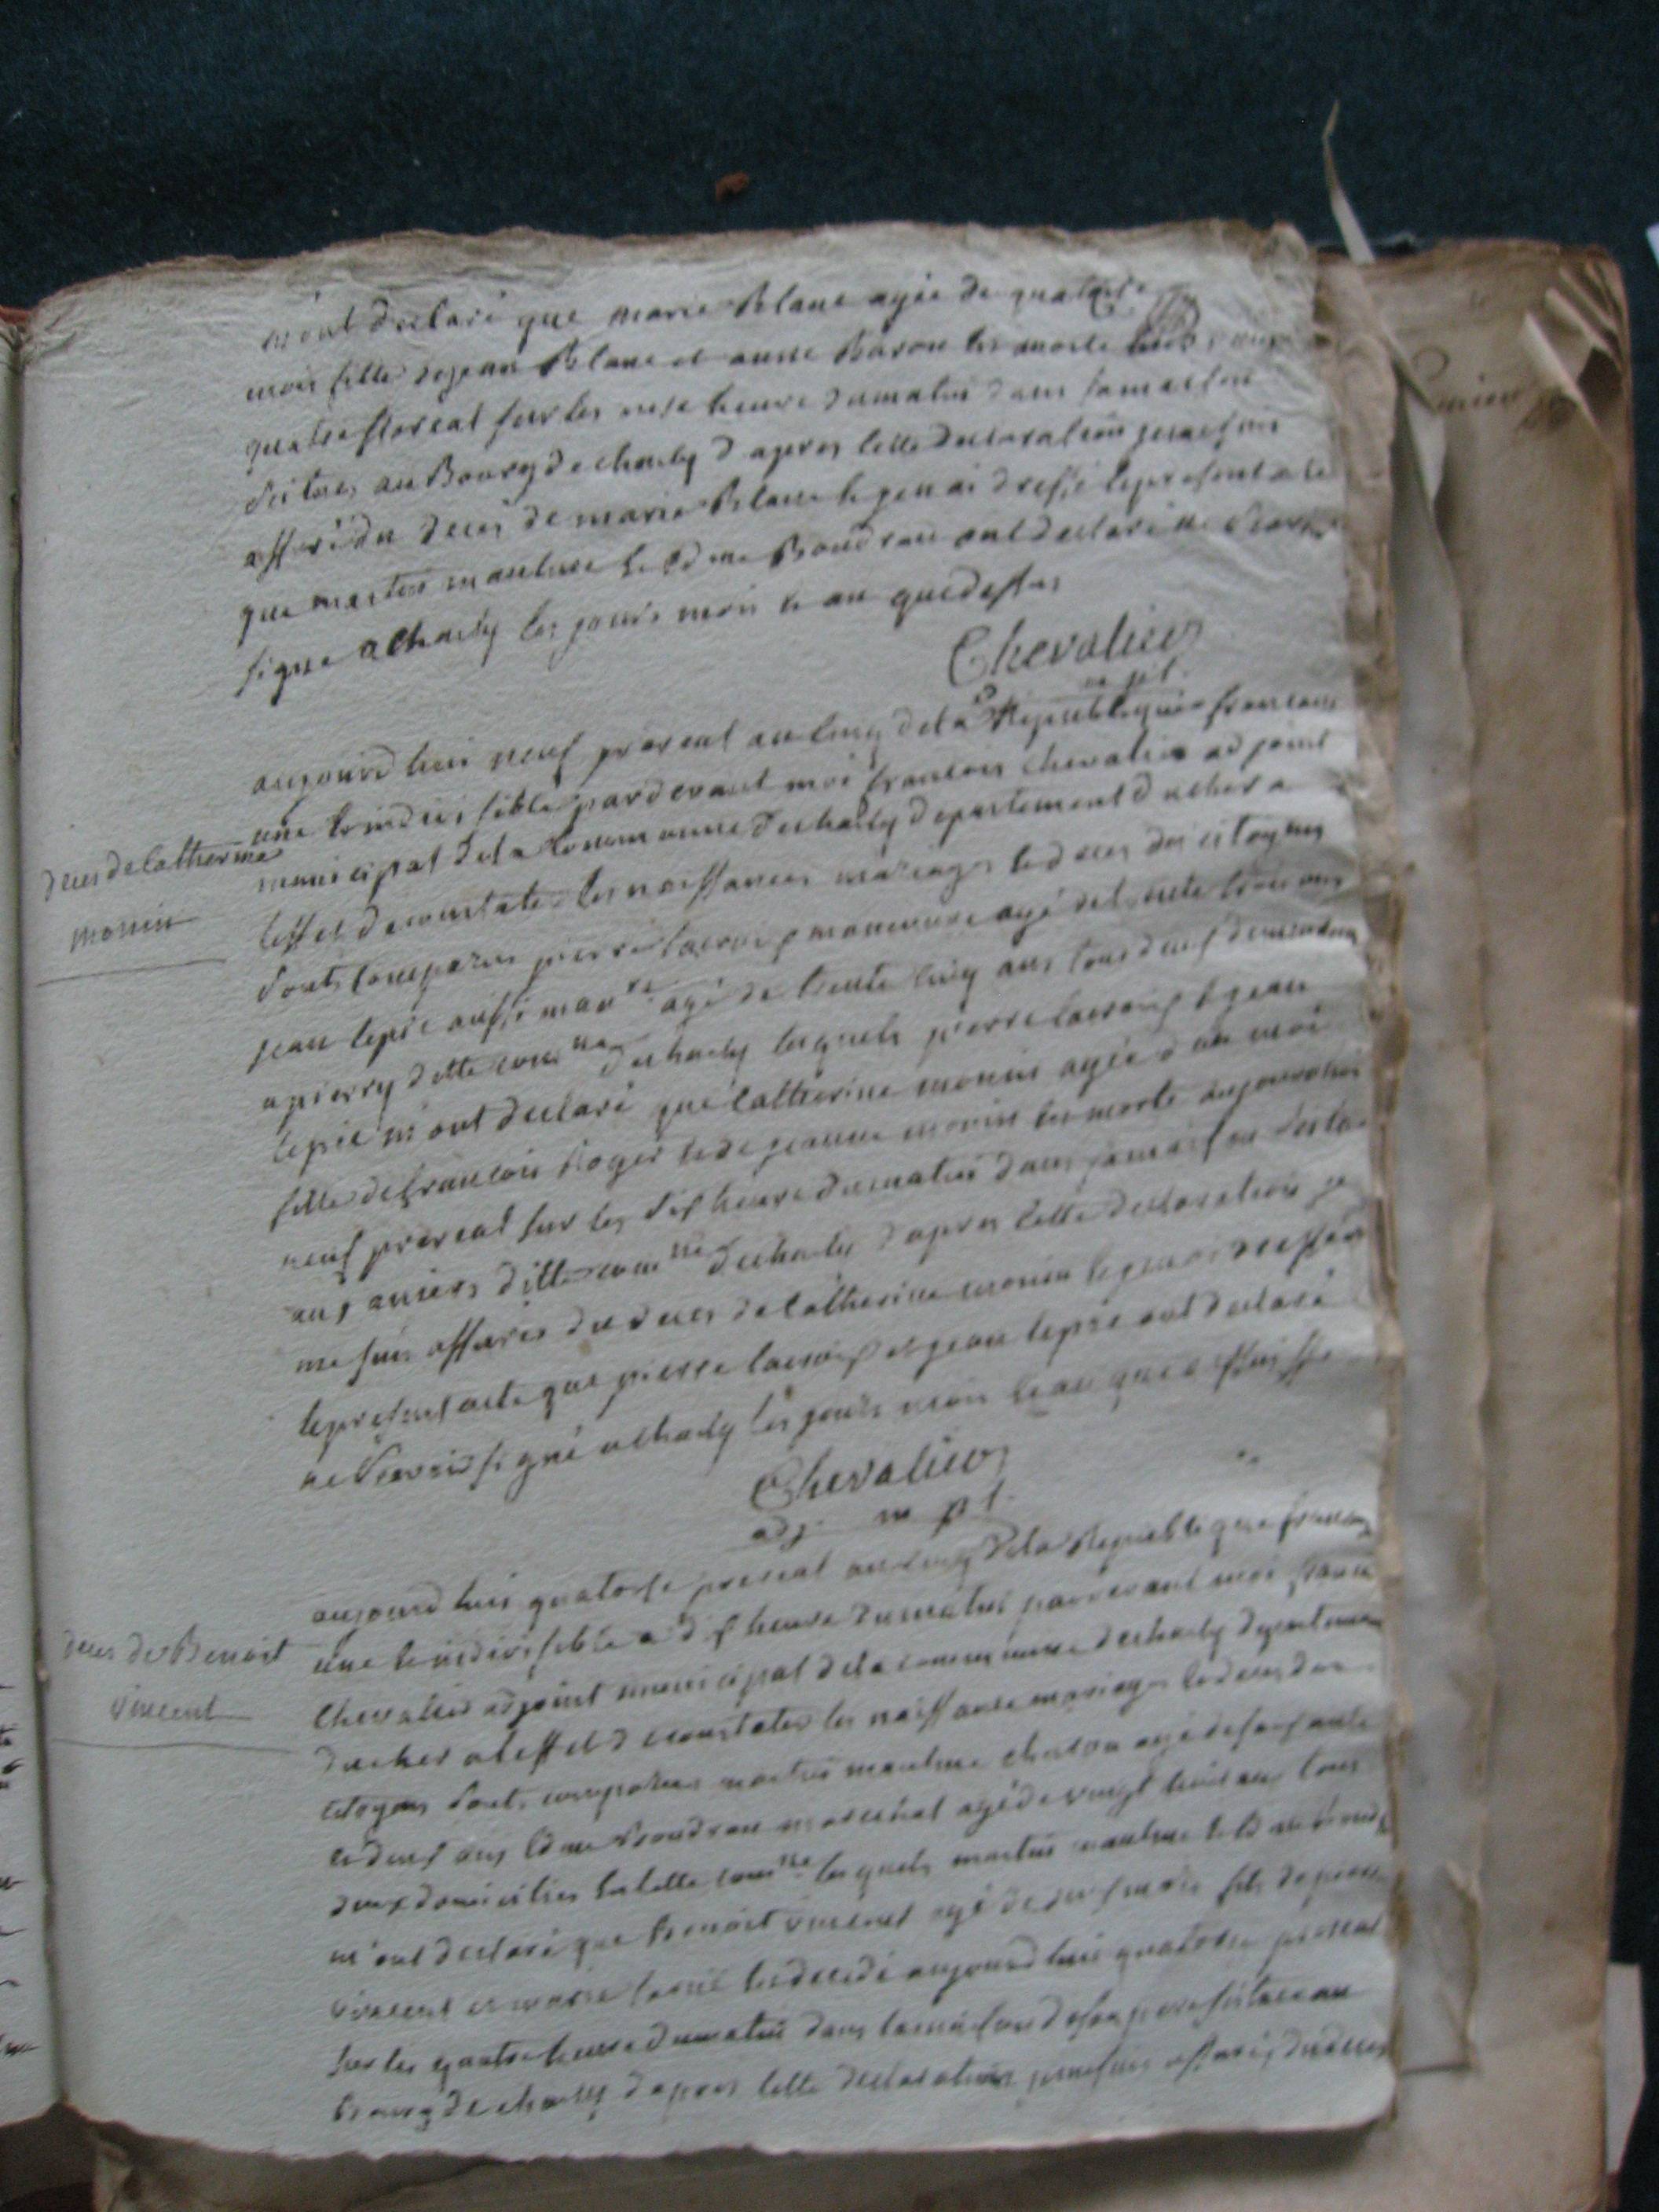 m'ont declaré que marie Blanc agée de quatorze
mois fille de jean Blanc et anne Baron est morte
quatre floreal sur les onze heure du matin dans sa maison
scituée au Bourg de charly d apres cette declaration je me suis
assuré du deces de marie Blanc et jen ai dressé le present acte
que martin et Edme Boudrau ont declaré ne scavoir
signe a charly les jours mois et an que dessus
Chevalier
m pl
aujourdhui neuf prereal an cinq de la Republique francaise
une et indivisible pardevant moi francois chevalier adjoint
municipal de la commune de charly departement du cher a
leffet de constater les naissances mariages et deces des citoyens
sont comparus pierre lacroix manouvre agé de trente trois ans
jean lepie aussi manre agé de trente cinq ans tous deux demeurant
a pierry ditte comne de charly lesquels pierre lacroix et jean
lepie m'ont declaré que catherine monin agée d un moi
fille de francois Roger et de jeanne monin est morte aujourdhui
neuf prereal sur les six heure du matin dans sa maison
aux aniers ditte comne de charly d apres cette declaration je
me suis assurée du deces de catherine monin et jen ai dressé
le present acte que pierre lacroix et jean lepie ont declaré
ne scavoir signé a charly les jours mois et an que
Chevalier
adj m pl
deces de catherine
monin
aujourdhui quatorze prereal an cinq de la Republique
une et indivisible a dix heure du matin pardevant moi
chevalier adjoint municipal de la commune de charly departement
du cher a leffet de constater les naissance mariages et deces des
citoyens sont comparus martin charon agé de soixante
et deux ans Edme Boudrau marechal agé de vingt huit ans tous
deux domiciliés en cette comne lesquels martin et Edme
m'ont declaré que benoist vincent agé de dix mois fils de pierre
vincent et marie est decedé aujourdhui quatorze prereal
sur les quatre heure du matin dans la maison de son pere scituee au
bourg de charly d apres cette declaration je me suis assuré du deces
deces de Benoist
vincent